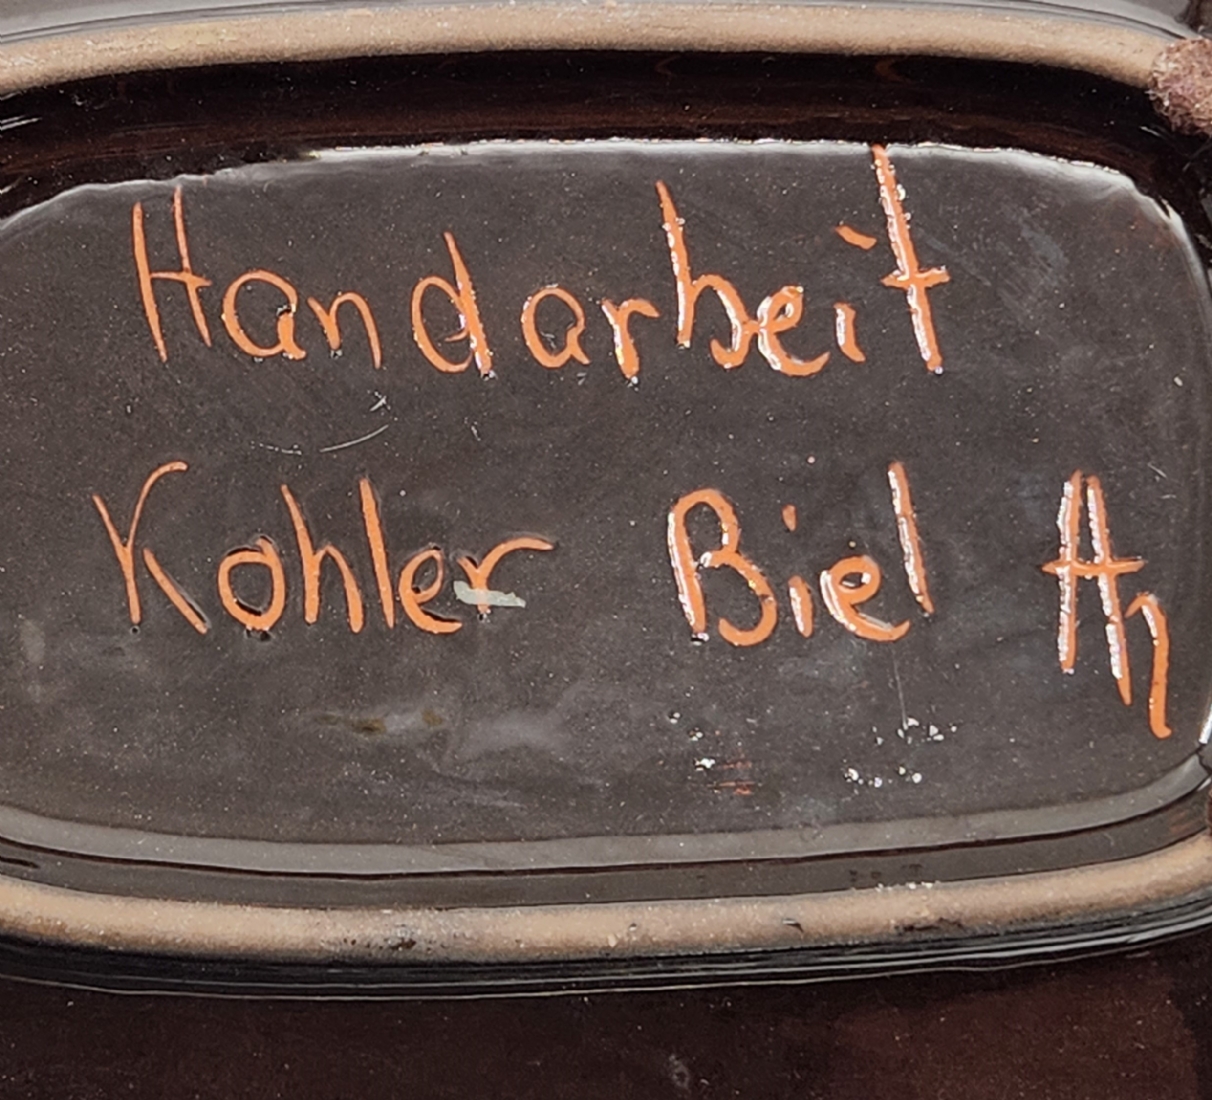 Handarbeit
Kohler Biel Ah